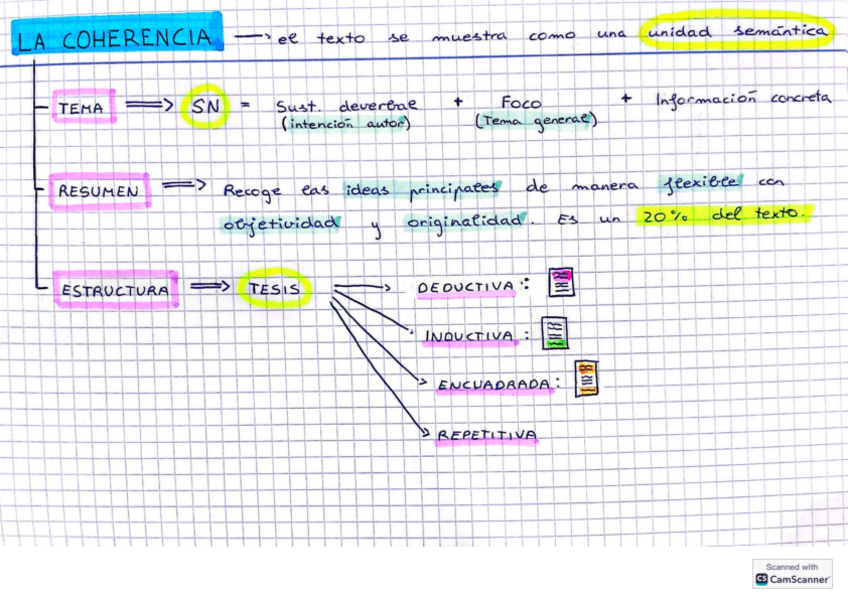 LA COHERENCIA → el texto se muestra como una unidad semántica
TEMA ⇒ SN = Sust. deverbal + Foco + Información concreta
(intención autor) (Tema general)
RESUMEN ⇒ Recoge las ideas principales de manera flexible con
objetividad y originalidad. Es un 20% del texto.
ESTRUCTURA ⇒ TESIS → DEDUCTIVA:
INDUCTIVA:
ENCUADRADA:
REPETITIVA
Scanned with
CS CamScanner